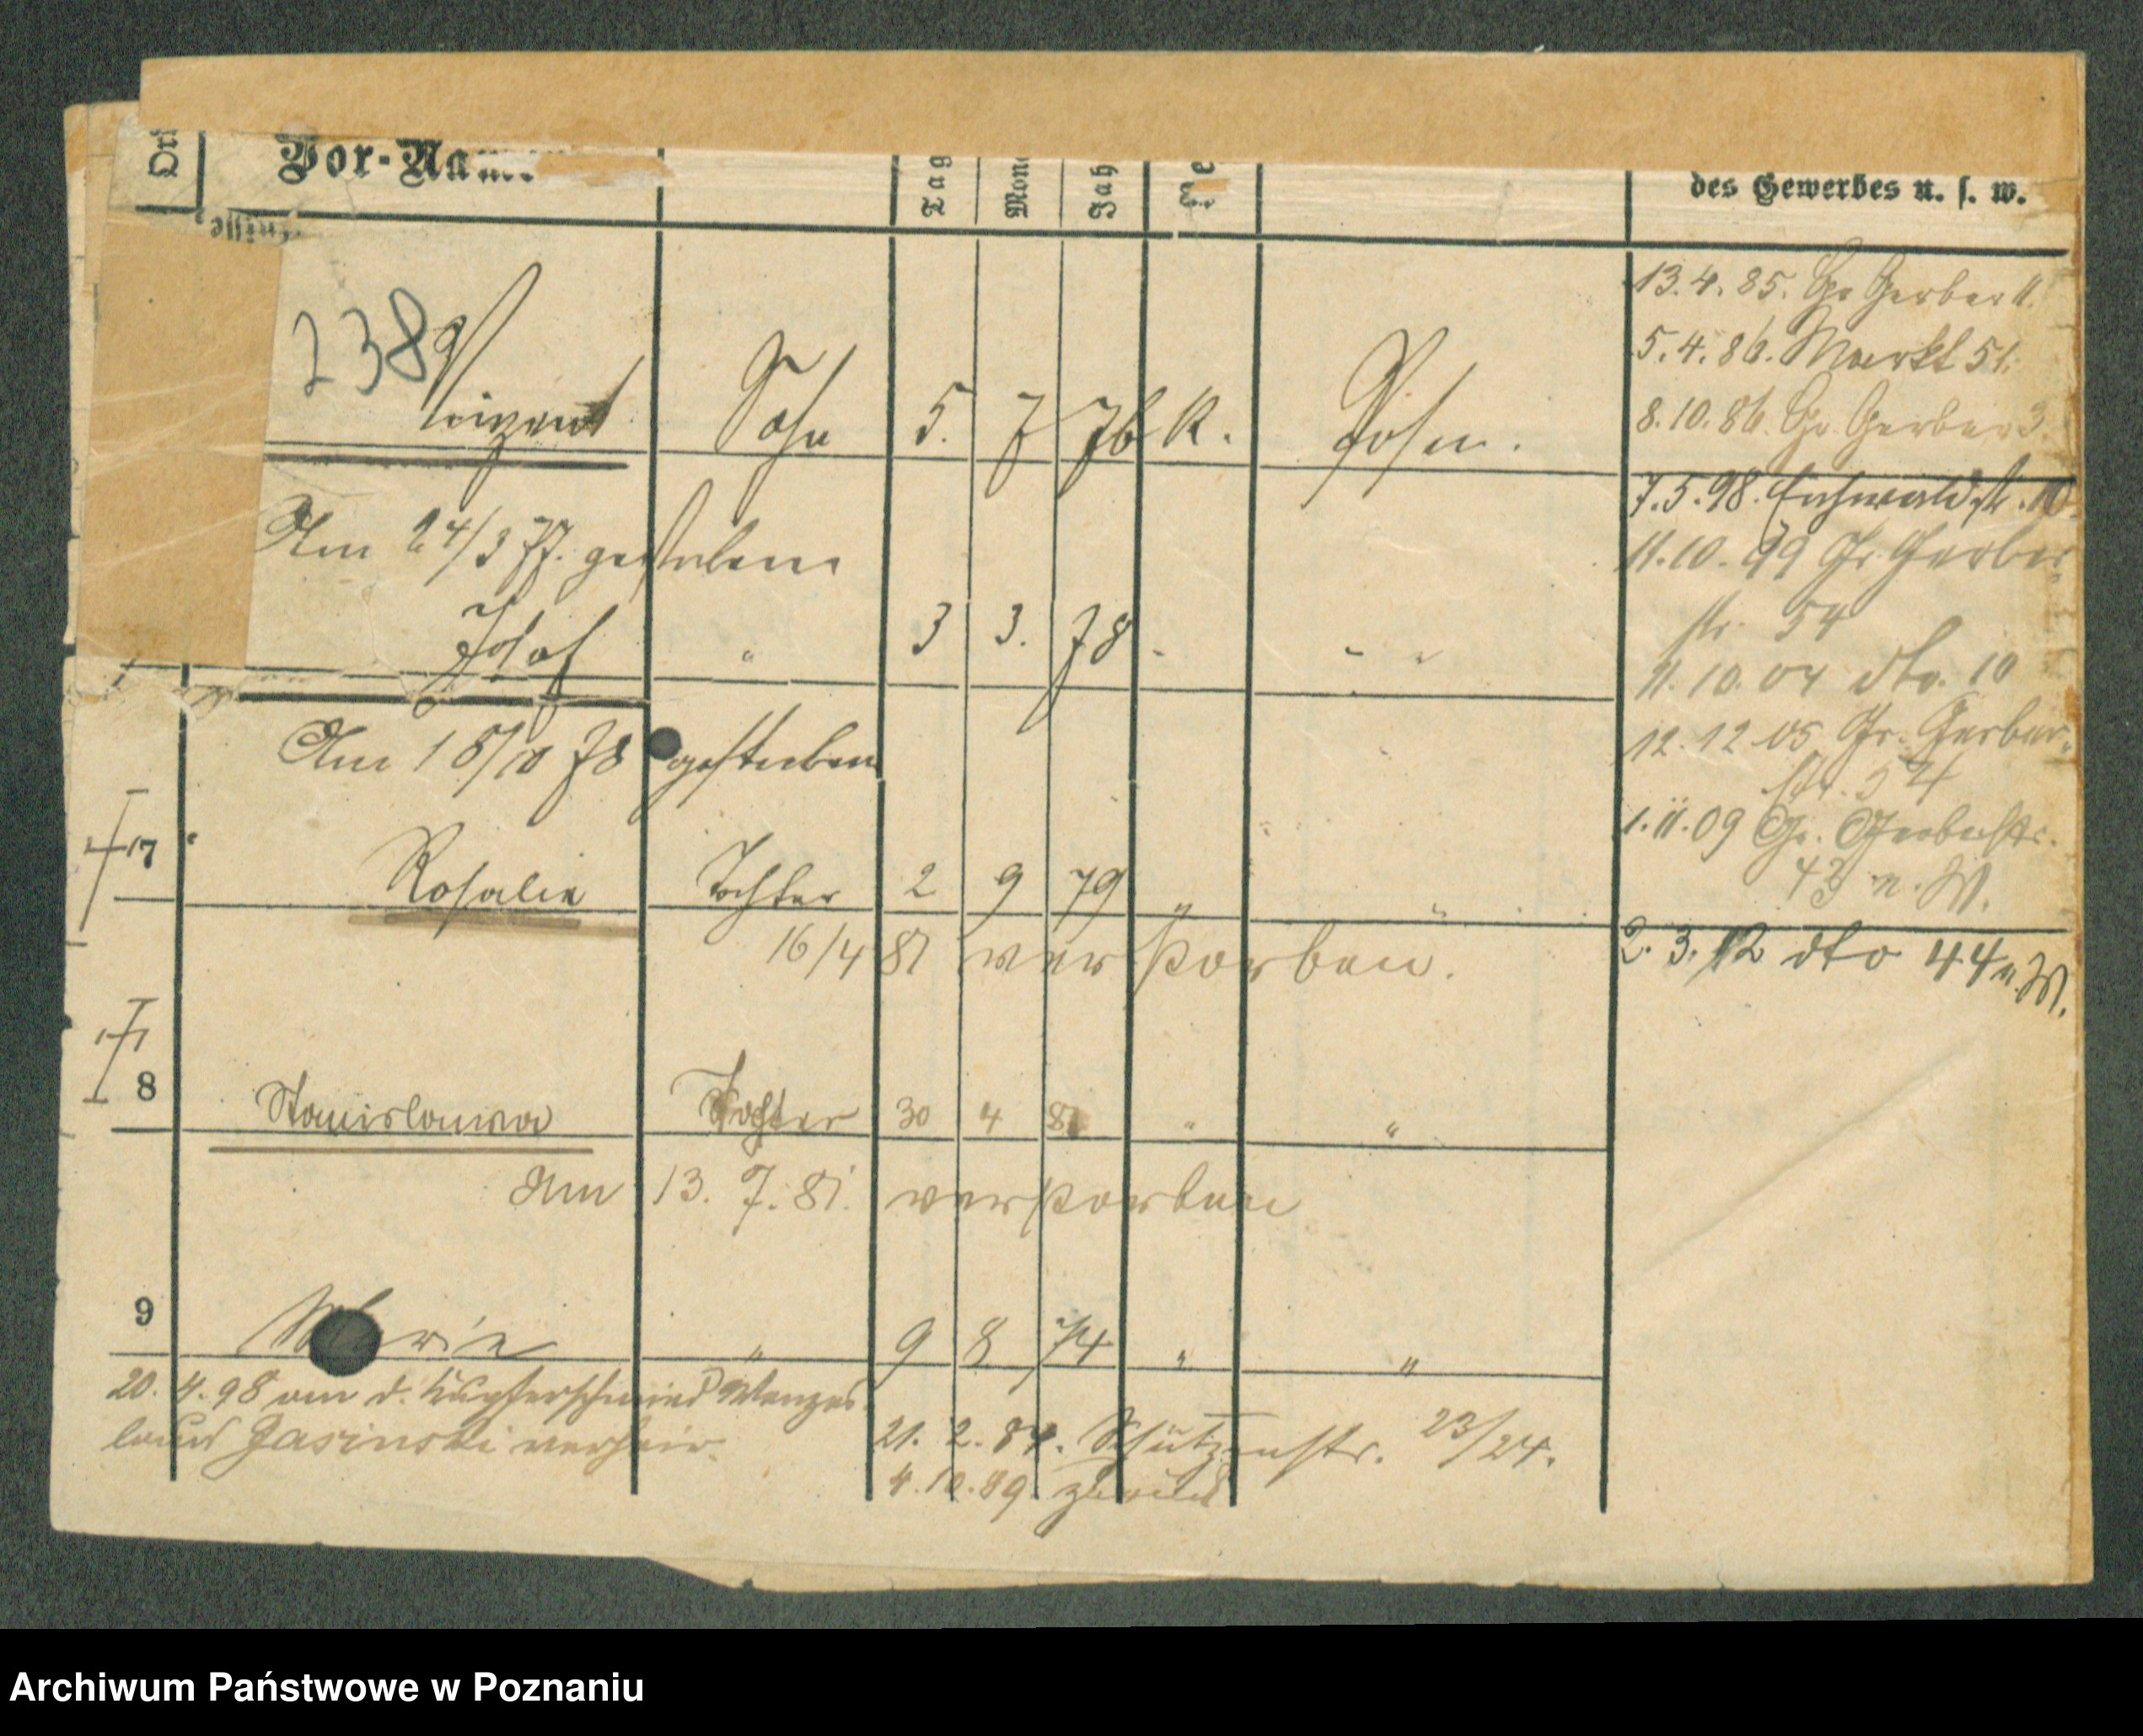 Vor-Nam
Tag
Mon
Jah
des Gewerbes u. s. w.
238
Vinzent Sohn 5. 7 76 K. Posen.
Am 24/3 77. gestorben
Josef " 3 3. 78 - - -
Am 18/10 78 gestorben
7 Rosalie Tochter 2 9 79 " "
16/4 81 verstorben.
8 Stanislawa Tochter 30 4 81 " "
Am 13. 7. 81. verstorben
9 Marie " 9 8 74 " "
20. 4. 98 an d. Kupferschmied Wenzes
laus Jasinski verheir.
21. 2. 84. Schützenstr. 23/24.
4. 10. 89. zurück
13. 4. 85. Gr Gerber 11.
5. 4. 86. Markt 51.
8. 10. 86. Gr. Gerber 3.
7. 5. 98. Eichwaldstr. 10.
11. 10. 99 Gr. Gerber
str. 54
11. 10. 04 dto. 10
12. 12 05 Gr. Gerber
str. 54
1. 11. 09 Gr. Gerberstr.
43 n. W.
2. 3. 12 dto 44 n. W.
Archiwum Państwowe w Poznaniu